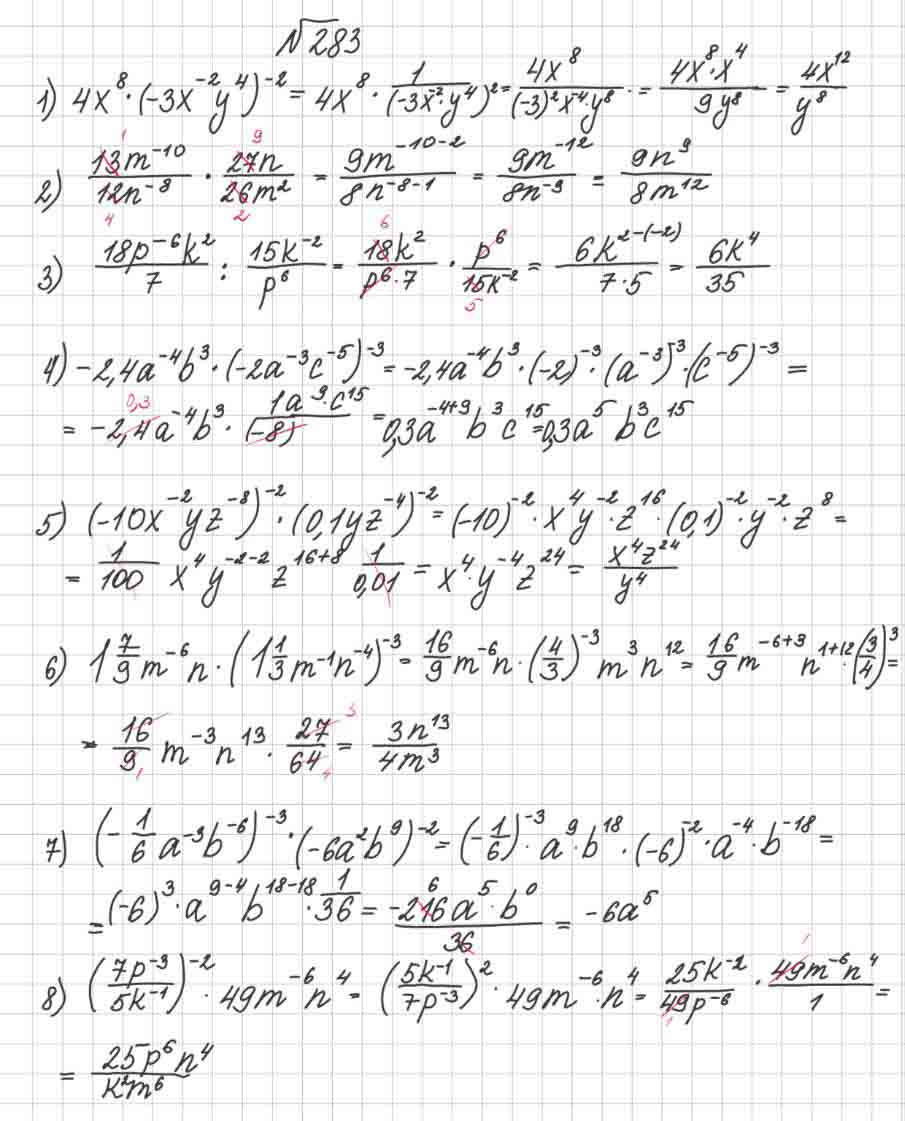 №283
1) 4x⁸·(-3x⁻²y⁴)⁻² = 4x⁸ · 1/((-3x⁻²·y⁴)²) = 4x⁸/((-3)²x⁻⁴·y⁸) · = 4x⁸·x⁴/9y⁸ = 4x¹²/y⁸
2) 13m⁻¹⁰/12n⁻⁸ · 27n/26m² = 9m⁻¹⁰⁻²/8n⁻⁸⁻¹ = 9m⁻¹²/8n⁻⁹ = 9n⁹/8m¹²
3) 18p⁻⁶k²/7 : 15k⁻²/p⁶ = 18k²/p⁶·7 · p⁶/15k⁻² = 6k²⁻⁽⁻²⁾/7·5 = 6k⁴/35
4) -2,4a⁻⁴b³·(-2a⁻³c⁻⁵)⁻³ = -2,4a⁻⁴b³·(-2)⁻³·(a⁻³)⁻³·(c⁻⁵)⁻³ =
= -2,4a⁻⁴b³ · 1a⁹·c¹⁵/(-8) = 0,3a⁻⁴⁺⁹b³c¹⁵ = 0,3a⁵b³c¹⁵
5) (-10x⁻²yz⁻⁸)⁻²·(0,1yz⁻⁴)⁻² = (-10)⁻²·x⁴y⁻²·z¹⁶·(0,1)⁻²·y⁻²·z⁸ =
= 1/100 x⁴y⁻²⁻²z¹⁶⁺⁸ 1/0,01 = x⁴·y⁻⁴z²⁴ = x⁴z²⁴/y⁴
6) 1 7/9 m⁻⁶n·(1 1/3 m⁻¹n⁻⁴)⁻³ = 16/9 m⁻⁶n·(4/3)⁻³m³n¹² = 16/9 m⁻⁶⁺³n¹⁺¹²·(3/4)³ =
= 16/9 m⁻³n¹³ · 27/64 = 3n¹³/4m³
7) (-1/6 a⁻³b⁻⁶)⁻³·(-6a²b⁹)⁻² = (-1/6)⁻³·a⁹·b¹⁸·(-6)⁻²·a⁻⁴·b⁻¹⁸ =
= (-6)³·a⁹⁻⁴b¹⁸⁻¹⁸·1/36 = -216a⁵·b⁰/36 = -6a⁵
8) (7p⁻³/5k⁻¹)⁻²·49m⁻⁶n⁴ = (5k⁻¹/7p⁻³)²·49m⁻⁶·n⁴ = 25k⁻²/49p⁻⁶ · 49m⁻⁶n⁴/1 =
= 25p⁶n⁴/k²m⁶